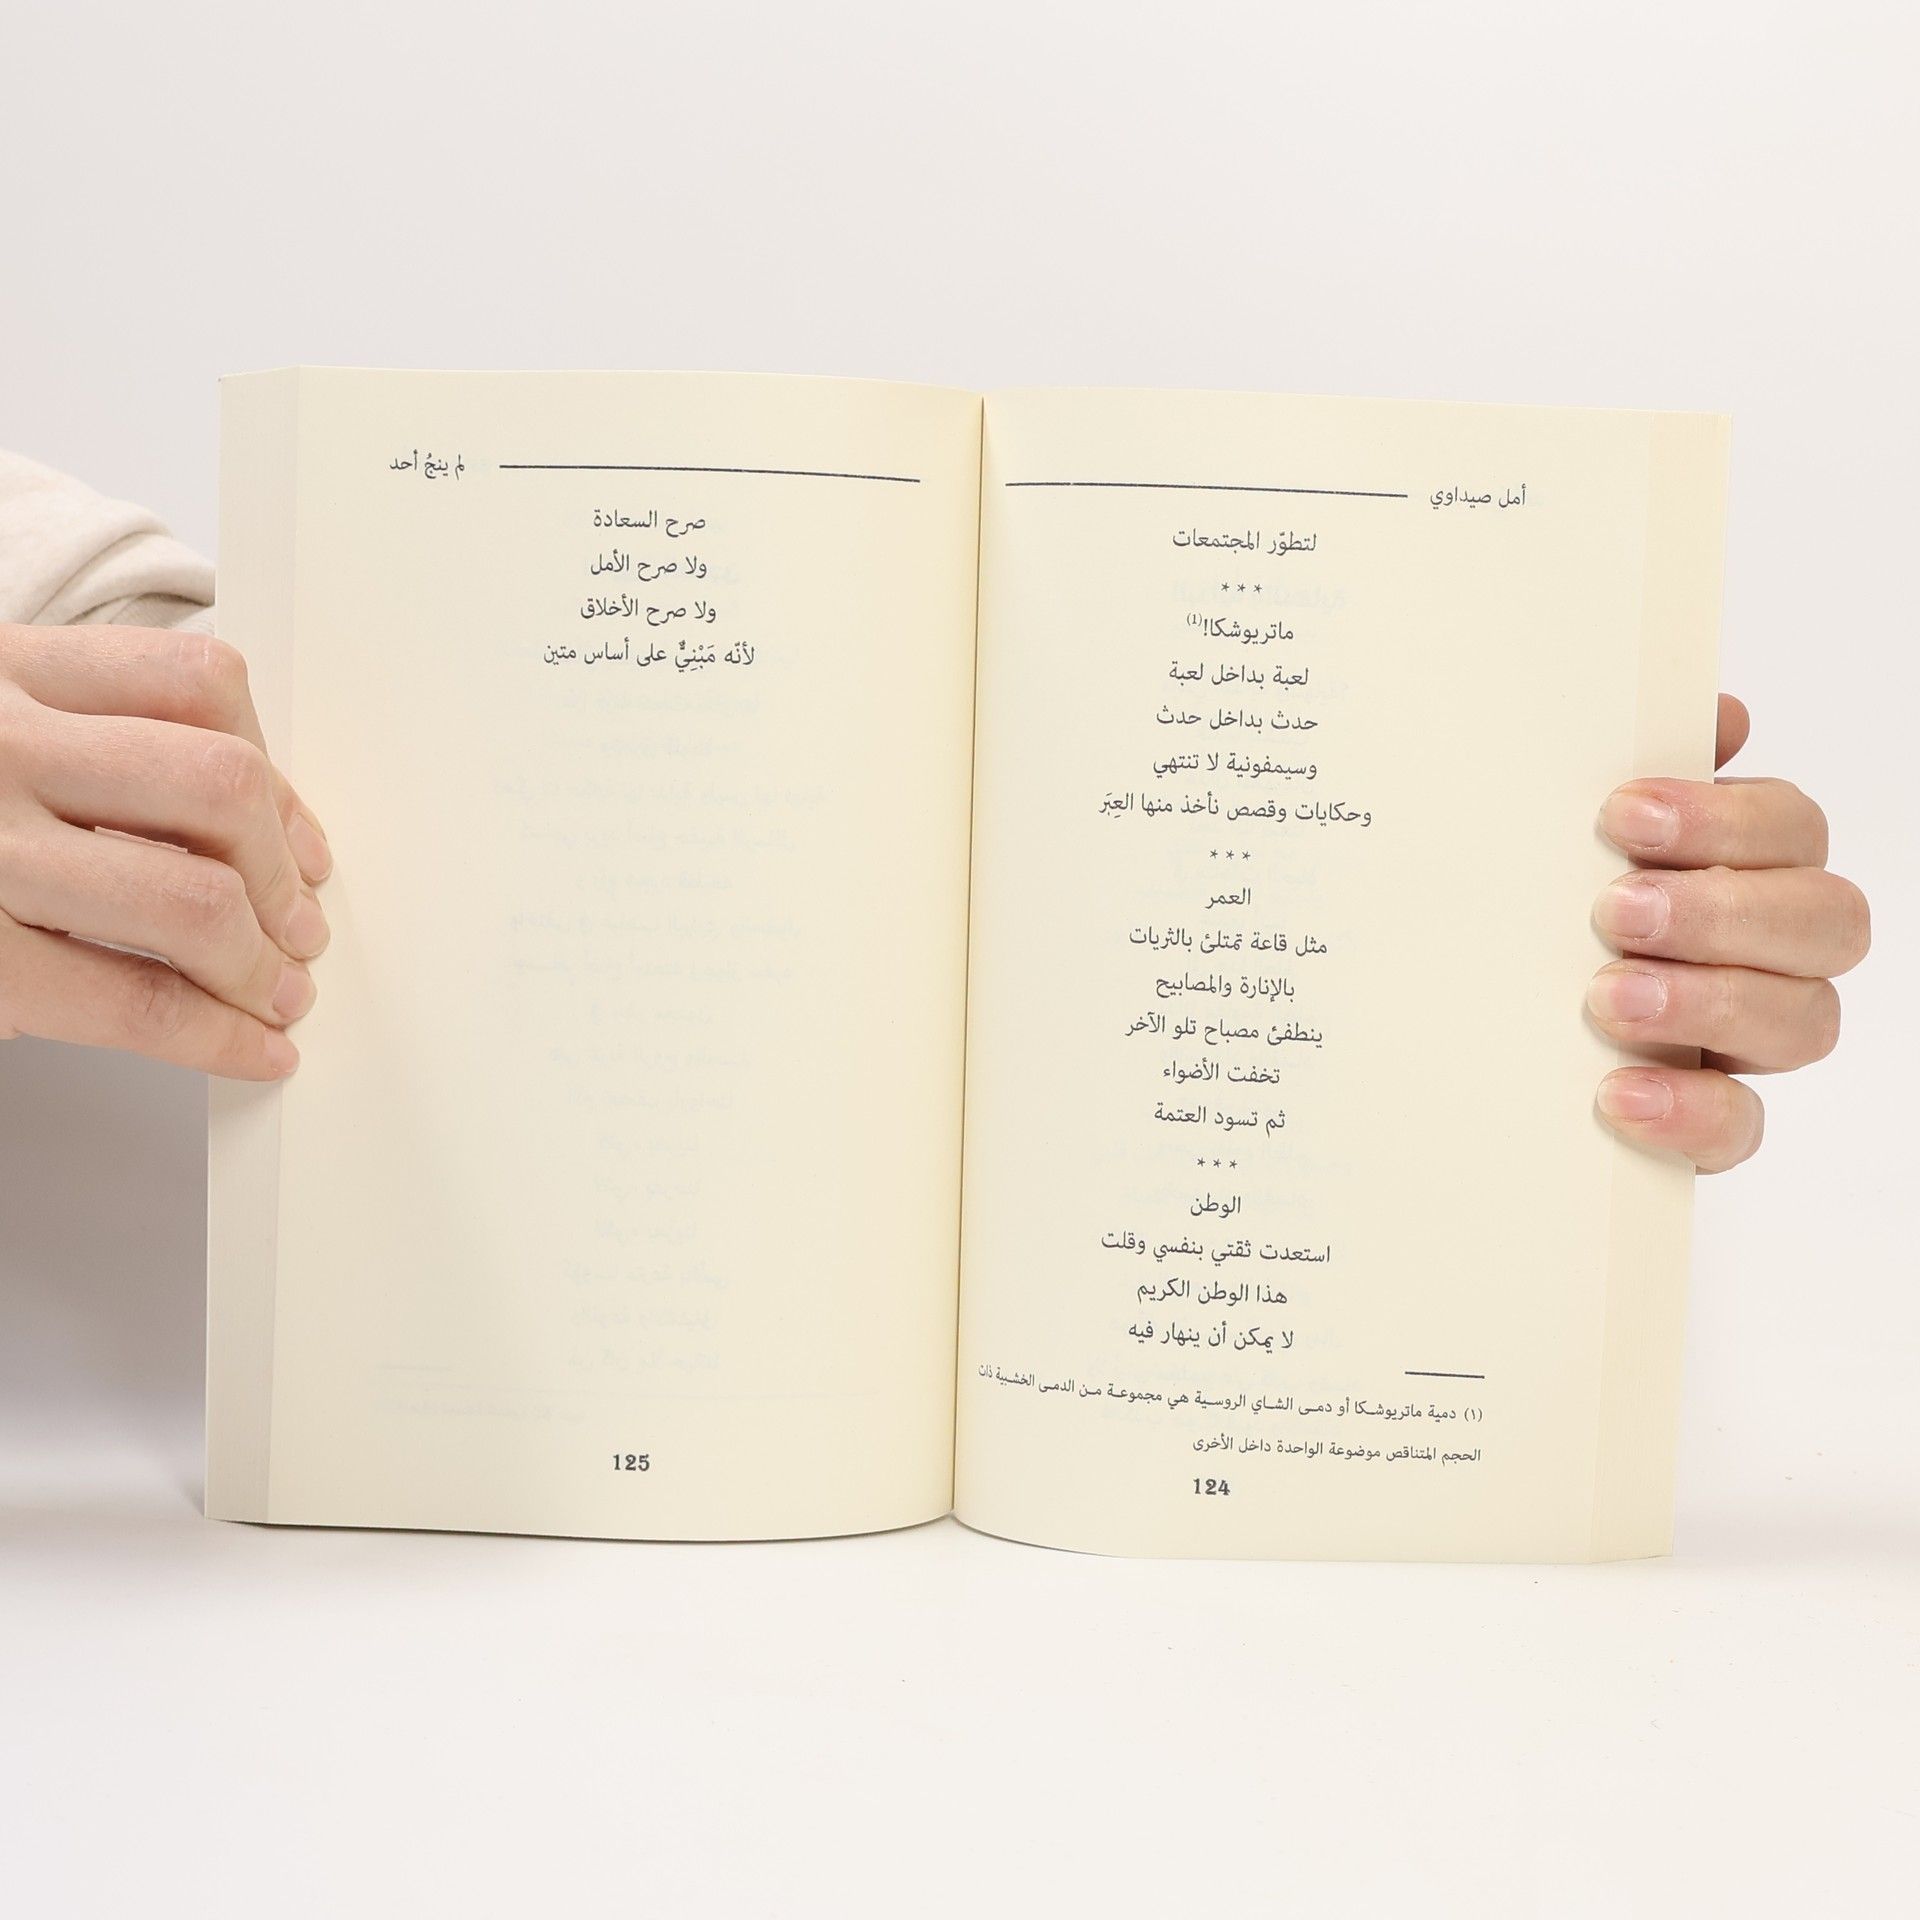 أمل صيداوي
لتطوّر المجتمعات
* * *
ماتريوشكا!(1)
لعبة بداخل لعبة
حدث بداخل حدث
وسيمفونية لا تنتهي
وحكايات وقصص نأخذ منها العِبَر
* * *
العمر
مثل قاعة تمتلئ بالثريات
بالإنارة والمصابيح
ينطفئ مصباح تلو الآخر
تخفت الأضواء
ثم تسود العتمة
* * *
الوطن
استعدت ثقتي بنفسي وقلت
هذا الوطن الكريم
لا يمكن أن ينهار فيه
(١) دمية ماتريوشـكا أو دمـى الشـاي الروسـية هي مجموعـة مـن الدمـى الخشـبية ذات
الحجم المتناقص موضوعة الواحدة داخل الأخرى
124
لم ينجُ أحد
صرح السعادة
ولا صرح الأمل
ولا صرح الأخلاق
لأنّه مَبْنِيٌّ على أساس متين
125